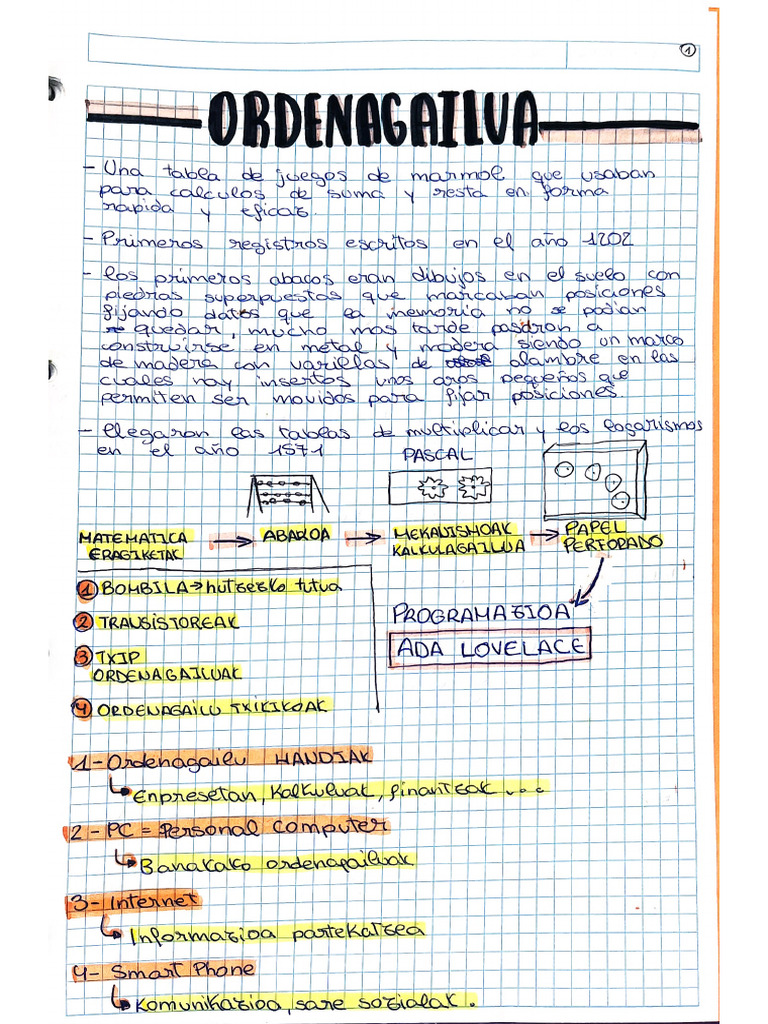 1
ORDENAGAILUA
- Una tabla de juegos de marmol que usaban
para calculos de suma y resta en forma
rapida y eficaz.
- Primeros registros escritos en el año 1202
- Los primeros abacos eran dibujos en el suelo con
piedras superpuestas que marcaban posiciones
fijando datos que la memoria no se podian
quedar, mucho mas tarde pasaron a
construirse en metal y madera siendo un marco
de madera con varillas de alambre en las
cuales hay insertos unos aros pequeños que
permiten ser movidos para fijar posiciones.
- Llegaron las tablas de multiplicar y los logarismos
en el año 1571
PASCAL
MATEMATICA ERAGIKETAK → ABAKOA → MEKANISMOAK KALKULAGAILUA → PAPEL PERFORADO
① BOMBILA → hutseko tutua
② TRANSISTOREAK
③ TXIP
ORDENAGAILUAK
④ ORDENAGAILU TXIKIKOAK
PROGRAMAZIOA
ADA LOVELACE
1- Ordenagailu HANDIAK
↳ Enpresetan, Kalkuluak, finantzak ...
2- PC = Personal Computer
↳ Banakako ordenagailuak
3- Internet
↳ Informazioa partekatzea
4- Smart Phone
↳ Komunikazioa, sare sozialak.